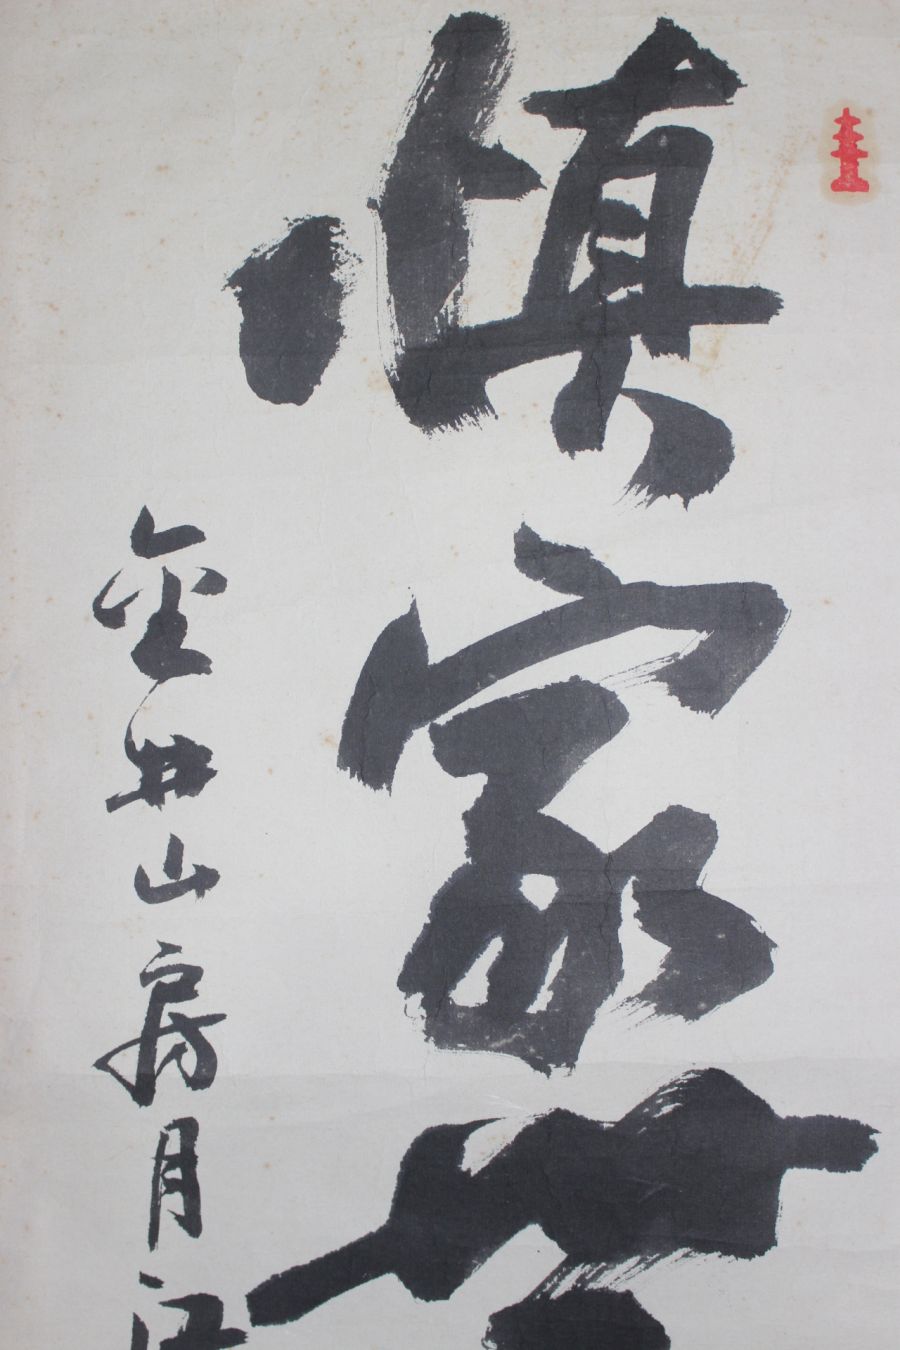 慎家
金井山房月